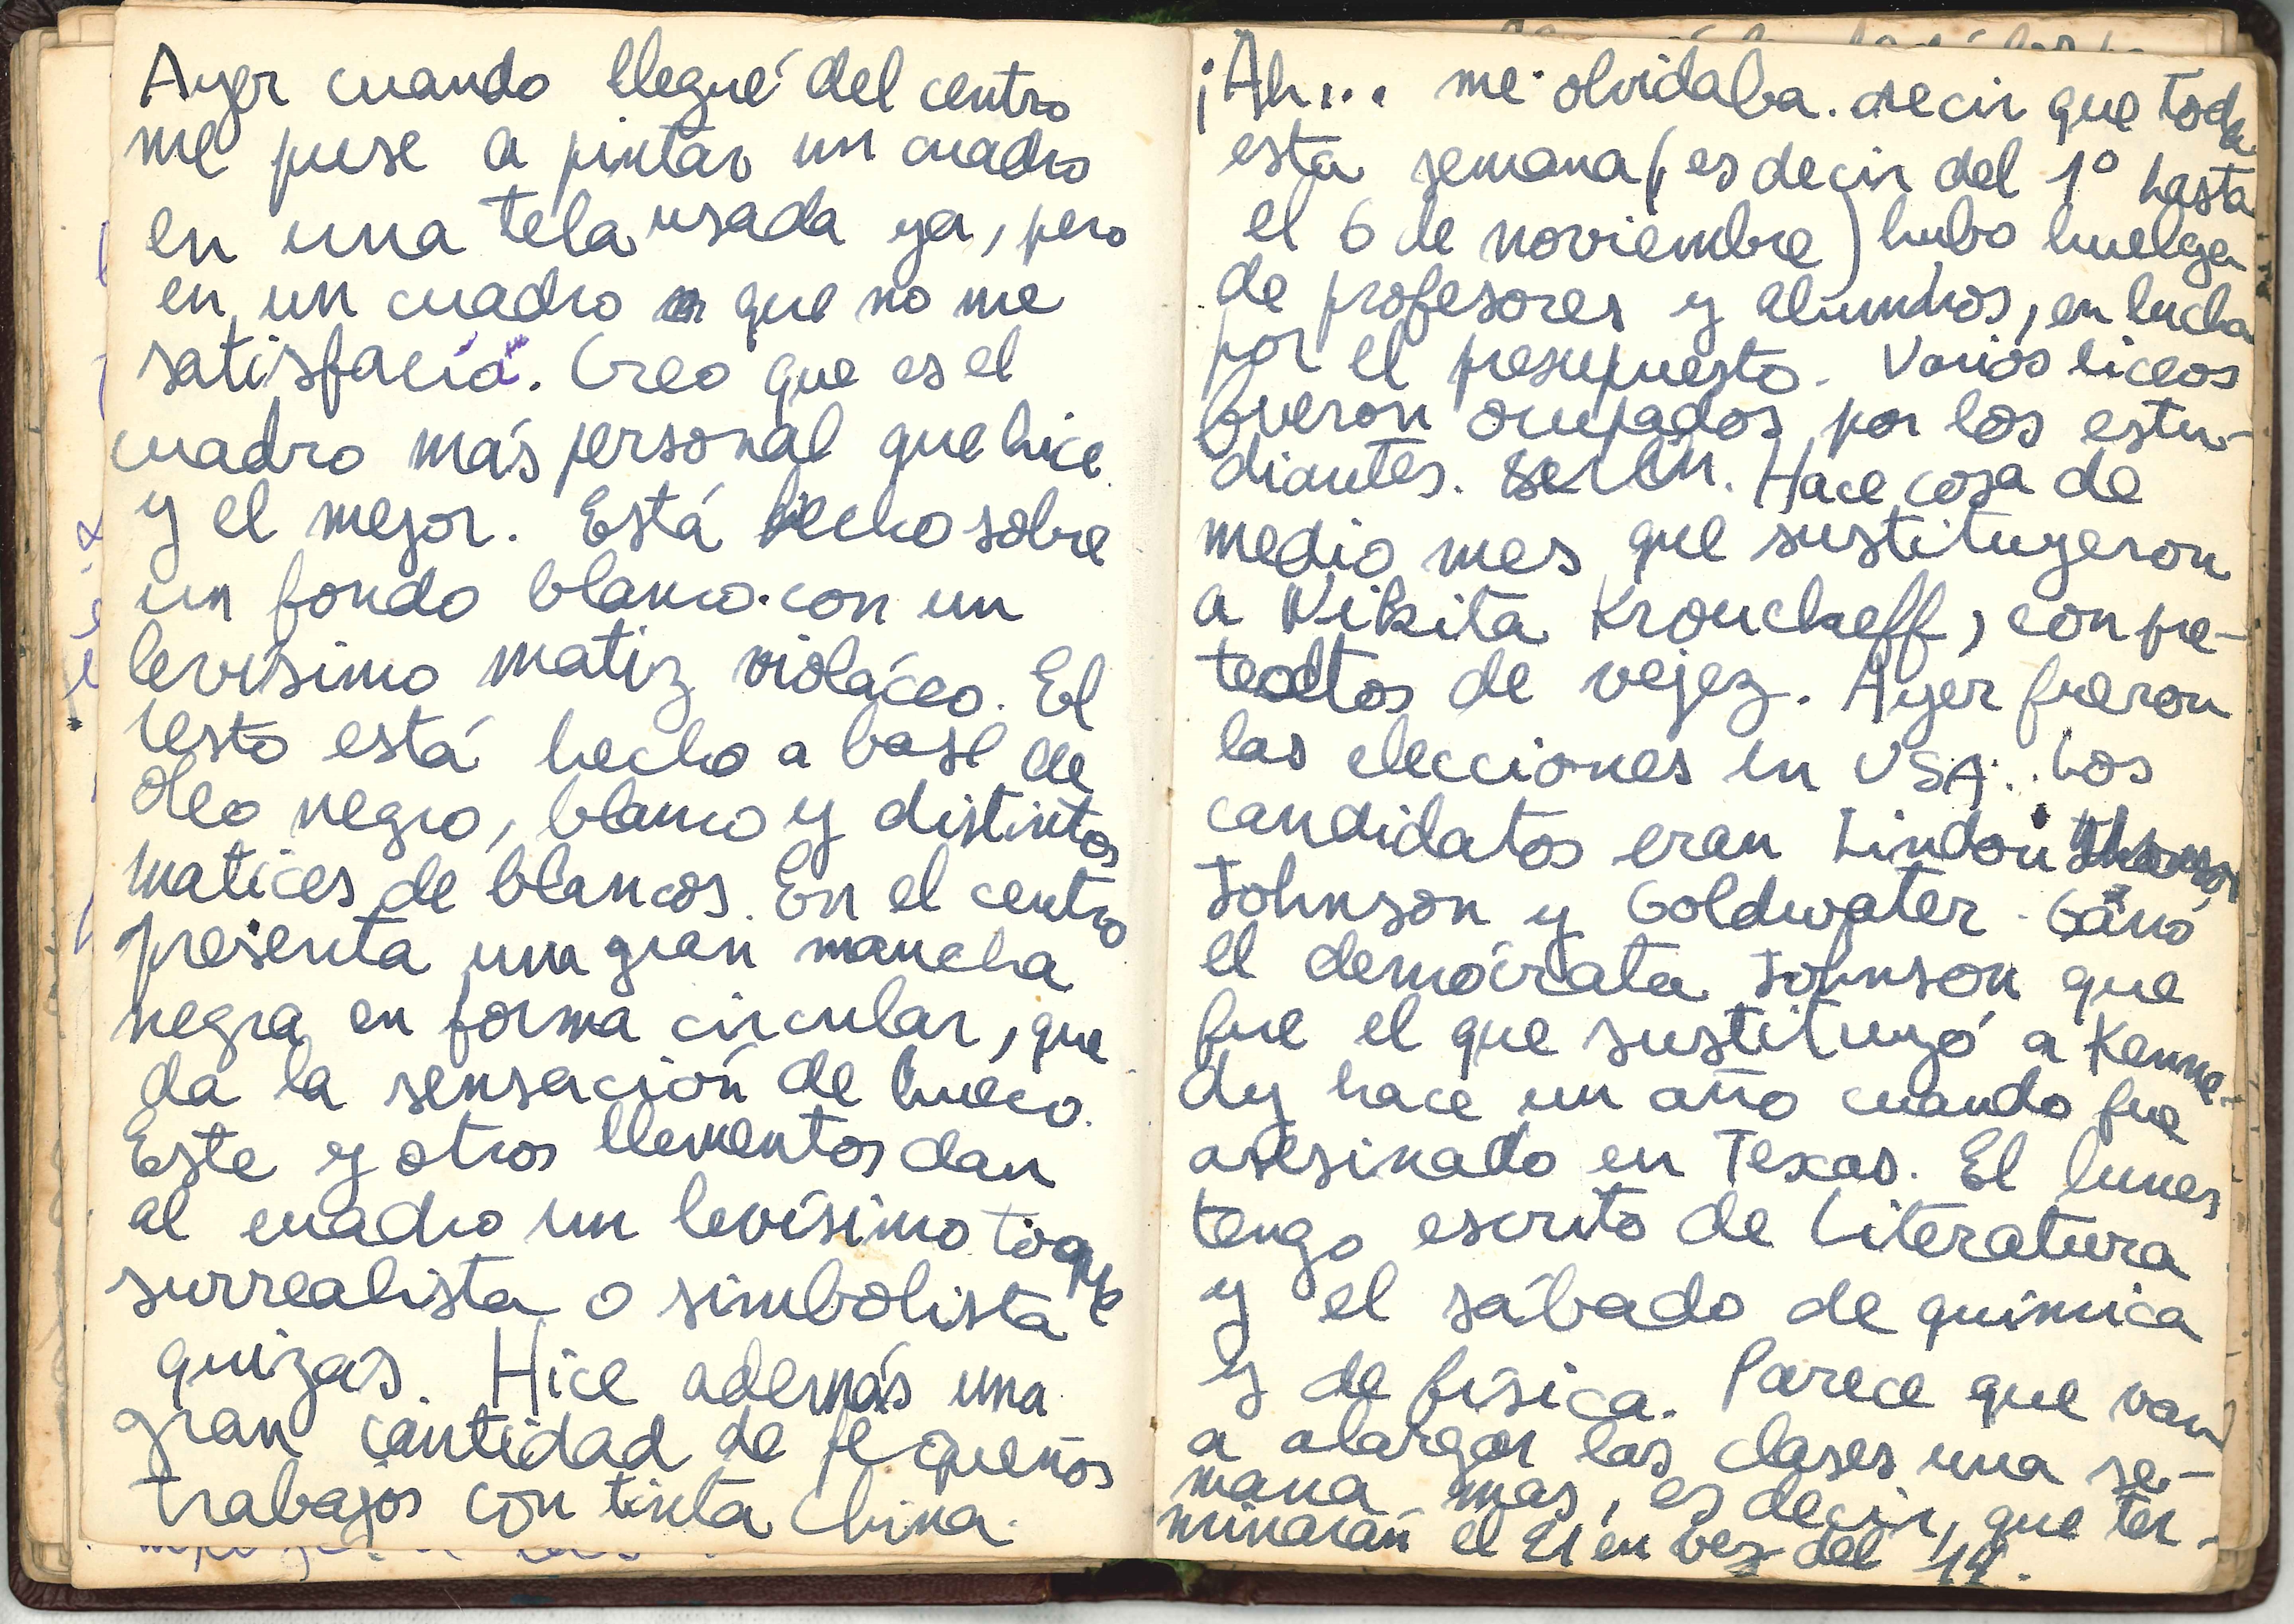 Ayer cuando llegué del centro
me puse a pintar un cuadro
en una tela usada ya, pero
en un cuadro que no me
satisfacía. Creo que es el
cuadro más personal que hice
y el mejor. Está hecho sobre
un fondo blanco con un
levísimo matiz violáceo. El
resto está hecho a base de
óleo negro, blanco y distintos
matices de blancos. En el centro
presenta una gran mancha
negra en forma circular, que
da la sensación de hueco.
Este y otros elementos dan
al cuadro un levísimo toque
surrealista o simbolista
quizás. Hice además una
gran cantidad de pequeños
trabajos con tinta china.
¡Ah... me olvidaba decir que toda
esta semana (es decir del 1º hasta
el 6 de noviembre) hubo huelga
de profesores y alumnos, en lucha
por el presupuesto. Varios liceos
fueron ocupados por los estu-
diantes. Hace cosa de
medio mes que sustituyeron
a Nikita Kroucheff, con pre-
textos de vejez. Ayer fueron
las elecciones en USA. Los
candidatos eran Lindon
Johnson y Goldwater. Ganó
el demócrata Johnson que
fue el que sustituyó a Kenne-
dy hace un año cuando fue
asesinado en Texas. El lunes
tengo escrito de Literatura
y el sábado de química
y de física. Parece que van
a alargar las clases una se-
mana mas, es decir, que ter-
minarán el 21 en vez del 14.